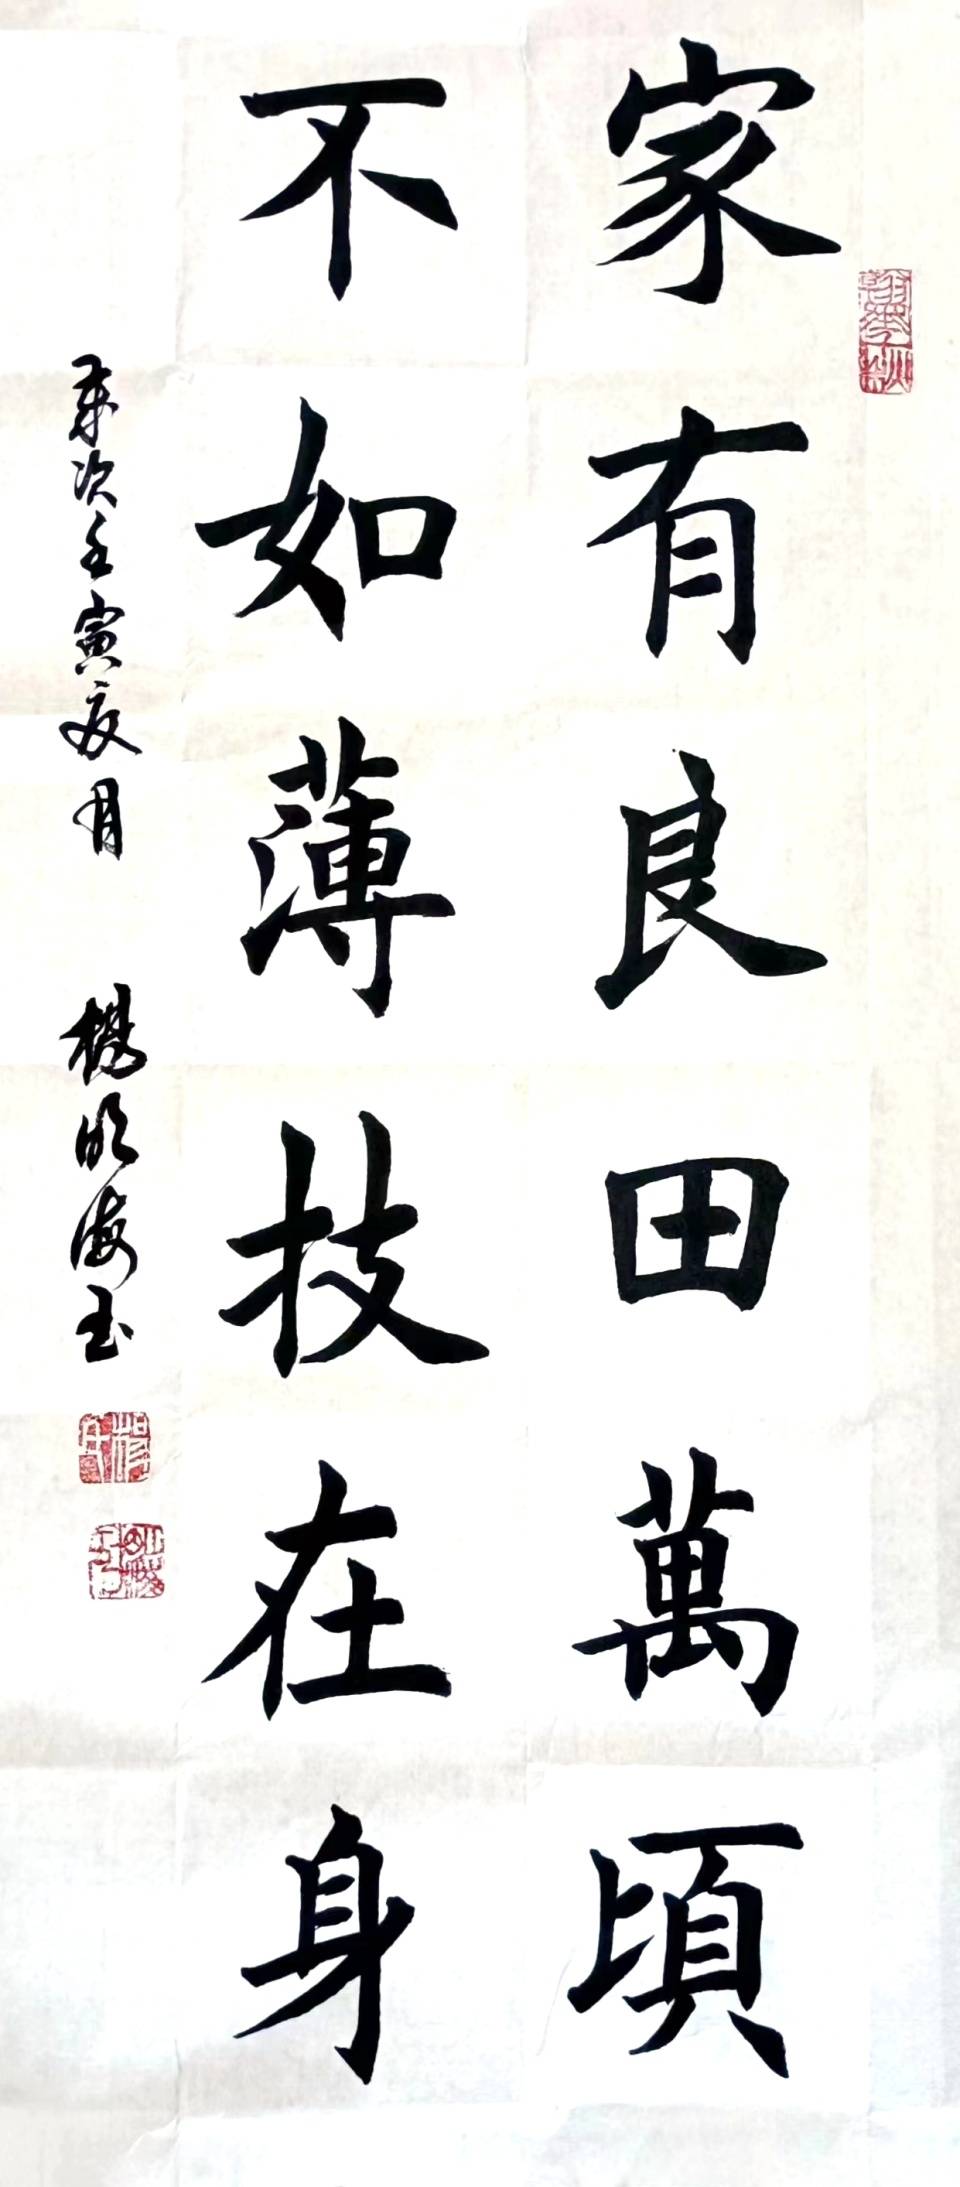 家有良田萬頃
不如薄技在身
歲次壬寅夏月 楊明海書